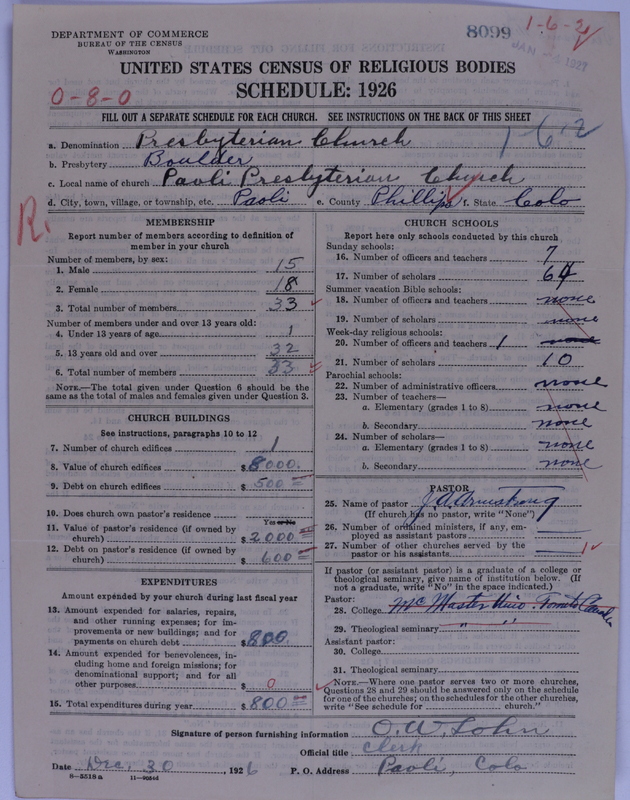 DEPARTMENT OF COMMERCE
BUREAU OF THE CENSUS
WASHINGTON
8099
1-6-2
JAN 1927
UNITED STATES CENSUS OF RELIGIOUS BODIES
SCHEDULE: 1926
0-8-0
FILL OUT A SEPARATE SCHEDULE FOR EACH CHURCH. SEE INSTRUCTIONS ON THE BACK OF THIS SHEET
a. Denomination Presbyterian Church
162
b. Presbytery Boulder
c. Local name of church Paoli Presbyterian Church
d. City, town, village, or township, etc. Paoli e. County Phillips f. State Colo
R.
MEMBERSHIP
Report number of members according to definition of
member in your church
Number of members, by sex:
1. Male 15
2. Female 18
3. Total number of members 33
Number of members under and over 13 years old:
4. Under 13 years of age 1
5. 13 years old and over 32
6. Total number of members 33
NOTE.—The total given under Question 6 should be the
same as the total of males and females given under Question 3.
CHURCH BUILDINGS
See instructions, paragraphs 10 to 12
7. Number of church edifices 1
8. Value of church edifices $8000.
9. Debt on church edifices $500
10. Does church own pastor's residence
Yes or No
11. Value of pastor's residence (if owned by
church) $2000
12. Debt on pastor's residence (if owned by
church) $600
EXPENDITURES
Amount expended by your church during last fiscal year
13. Amount expended for salaries, repairs,
and other running expenses; for im-
provements or new buildings; and for
payments on church debt $800
14. Amount expended for benevolences, in-
cluding home and foreign missions; for
denominational support; and for all
other purposes $0
15. Total expenditures during year $800
CHURCH SCHOOLS
Report here only schools conducted by this church
Sunday schools:
16. Number of officers and teachers 7
17. Number of scholars 64
Summer vacation Bible schools:
18. Number of officers and teachers none
19. Number of scholars none
Week-day religious schools:
20. Number of officers and teachers 1 none
21. Number of scholars 10
Parochial schools:
22. Number of administrative officers none
23. Number of teachers—
a. Elementary (grades 1 to 8) none
b. Secondary none
24. Number of scholars—
a. Elementary (grades 1 to 8) none
b. Secondary none
PASTOR
25. Name of pastor J A Armstrong
(If church has no pastor, write "None")
26. Number of ordained ministers, if any, em-
ployed as assistant pastors
27. Number of other churches served by the
pastor or his assistants 1
If pastor (or assistant pastor) is a graduate of a college or
theological seminary, give name of institution below. (If
not a graduate, write "No" in the space indicated.)
Pastor:
28. College Mc Master Univ. Toronto Canada
29. Theological seminary " "
Assistant pastor:
30. College
31. Theological seminary
NOTE.—Where one pastor serves two or more churches,
Questions 28 and 29 should be answered only on the schedule
for one of the churches; on the schedules for the other churches,
write "See schedule for church."
Signature of person furnishing information O. W. Lohn
Official title Clerk
Date Dec. 30, 1926 P. O. Address Paoli, Colo
8—5518a